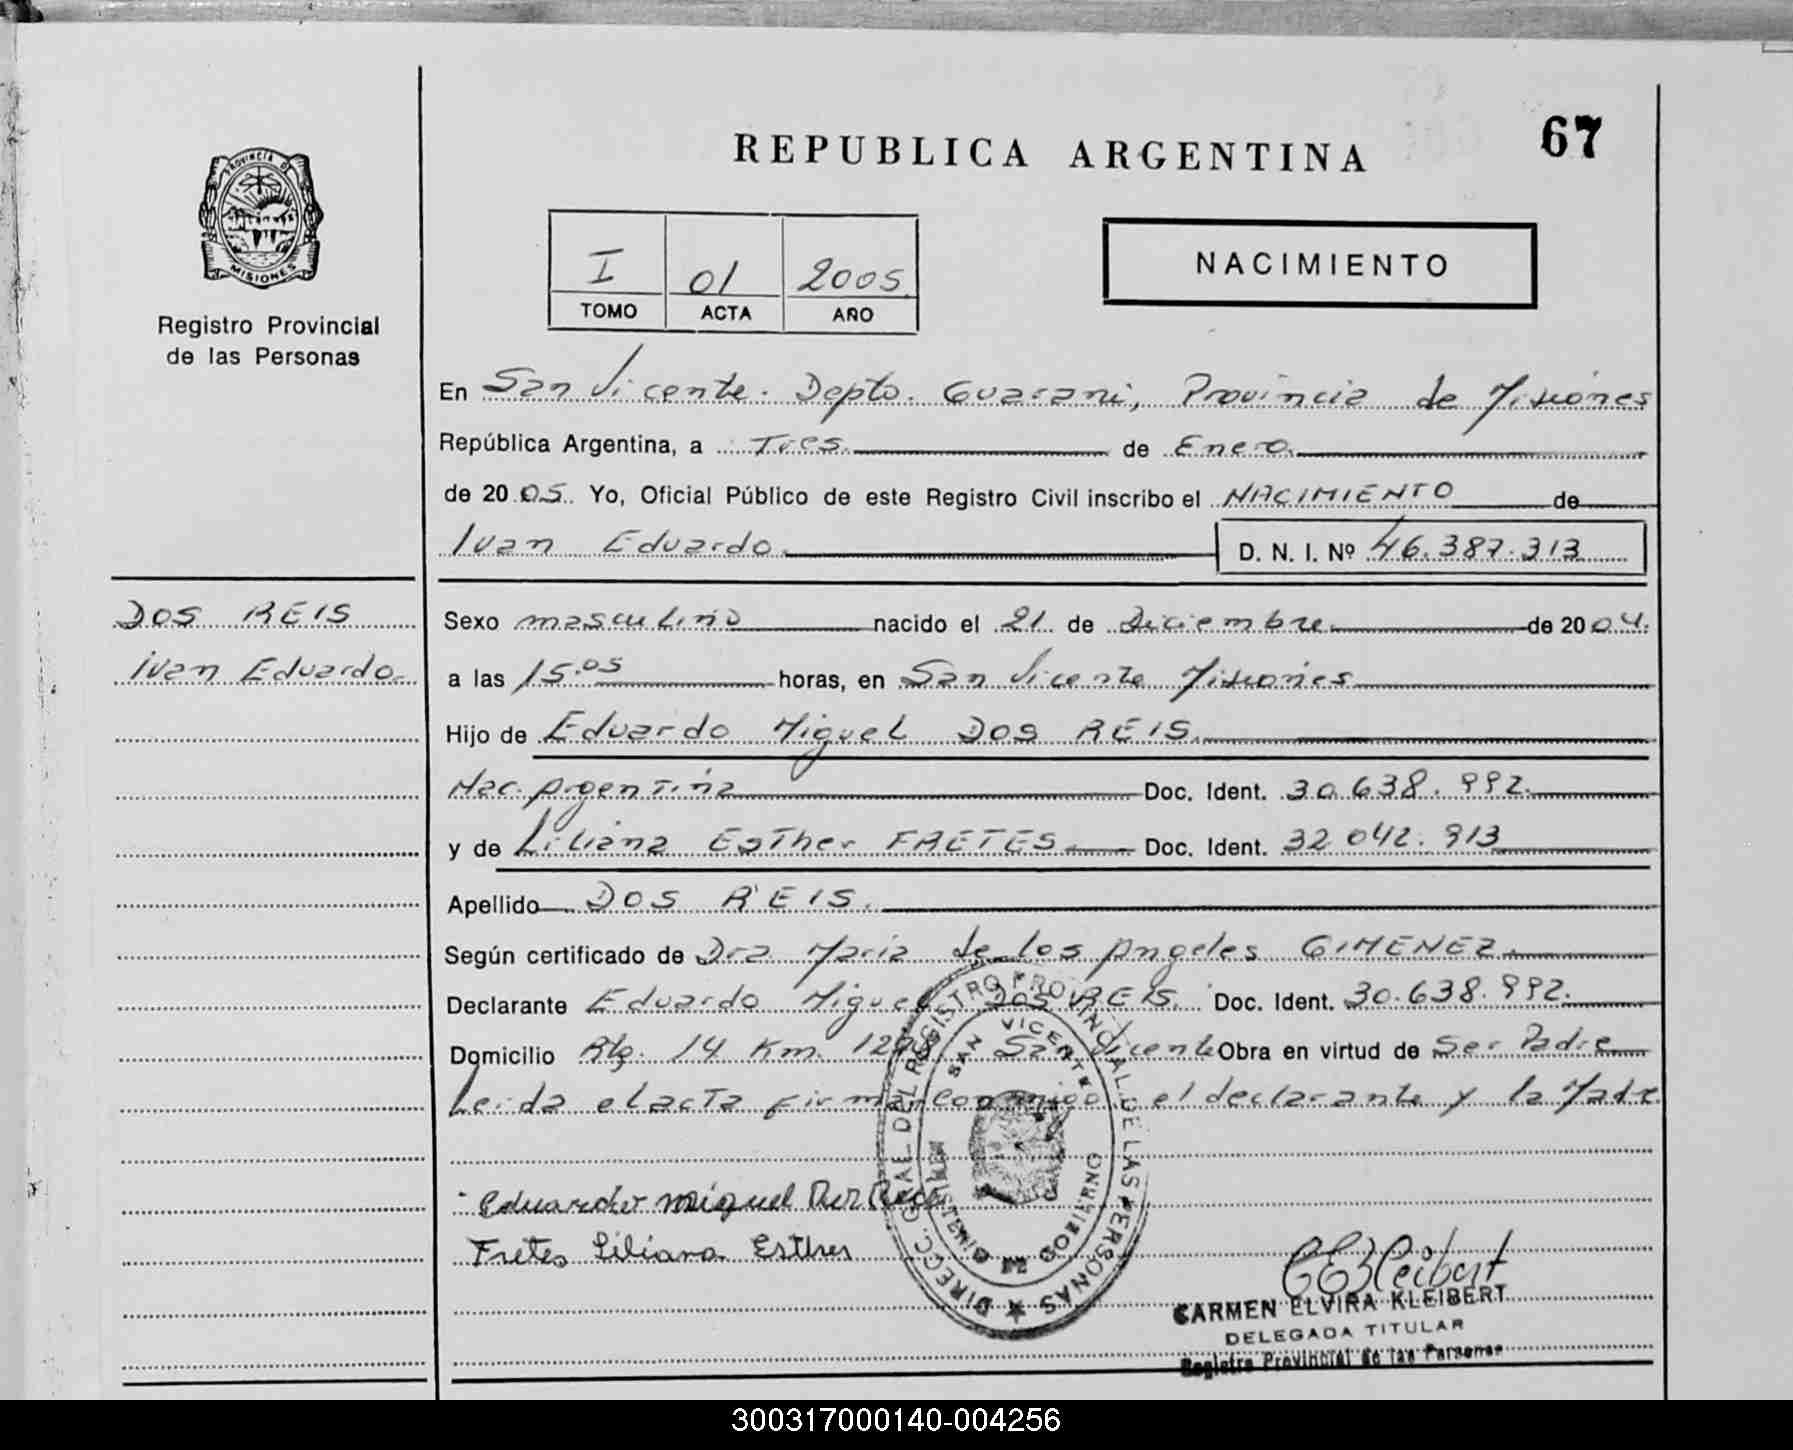 REPUBLICA ARGENTINA
67
PROVINCIA DE
MISIONES
Registro Provincial
de las Personas
I 01 2005
TOMO ACTA AÑO
NACIMIENTO
En San Vicente. Depto. Guarani, Provincia de Misiones
República Argentina, a Tres de Enero
de 2005. Yo, Oficial Público de este Registro Civil inscribo el NACIMIENTO de
Ivan Eduardo. D. N. I. Nº 46.387.313
DOS REIS
Ivan Eduardo
Sexo masculino nacido el 21 de Diciembre de 2004.
a las 15.05 horas, en San Vicente Misiones
Hijo de Eduardo Miguel DOS REIS.
Nac. Argentina Doc. Ident. 30.638.992.
y de Liliana Esther FRETES. Doc. Ident. 32.042.913
Apellido DOS REIS.
Según certificado de Dra Maria de los Angeles GIMENEZ.
Declarante Eduardo Miguel DOS REIS. Doc. Ident. 30.638.992.
Domicilio Km. San Vicente Obra en virtud de Ser Padre
Leida el acta firman conmigo el declarante y la Madre
Eduardo Miguel Dos Reis
Fretes Liliana Esther
DIRECC. GRAL DEL REGISTRO PROVINCIAL DE LAS PERSONAS
SAN VICENTE
MINISTERIO DE GOBIERNO
CEKleibert
CARMEN ELVIRA KLEIBERT
DELEGADA TITULAR
Registro Provincial de las Personas
300317000140-004256